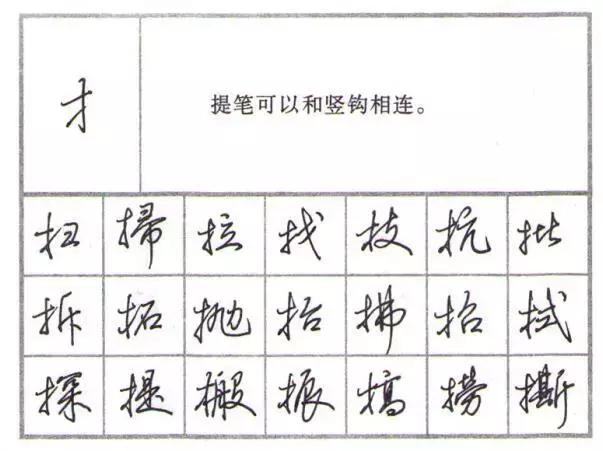 扌 提笔可以和竖钩相连。
扫 掃 拉 找 技 抗 批
拆 拓 抛 抬 拂 招 拭
探 提 搬 振 搞 捞 撕